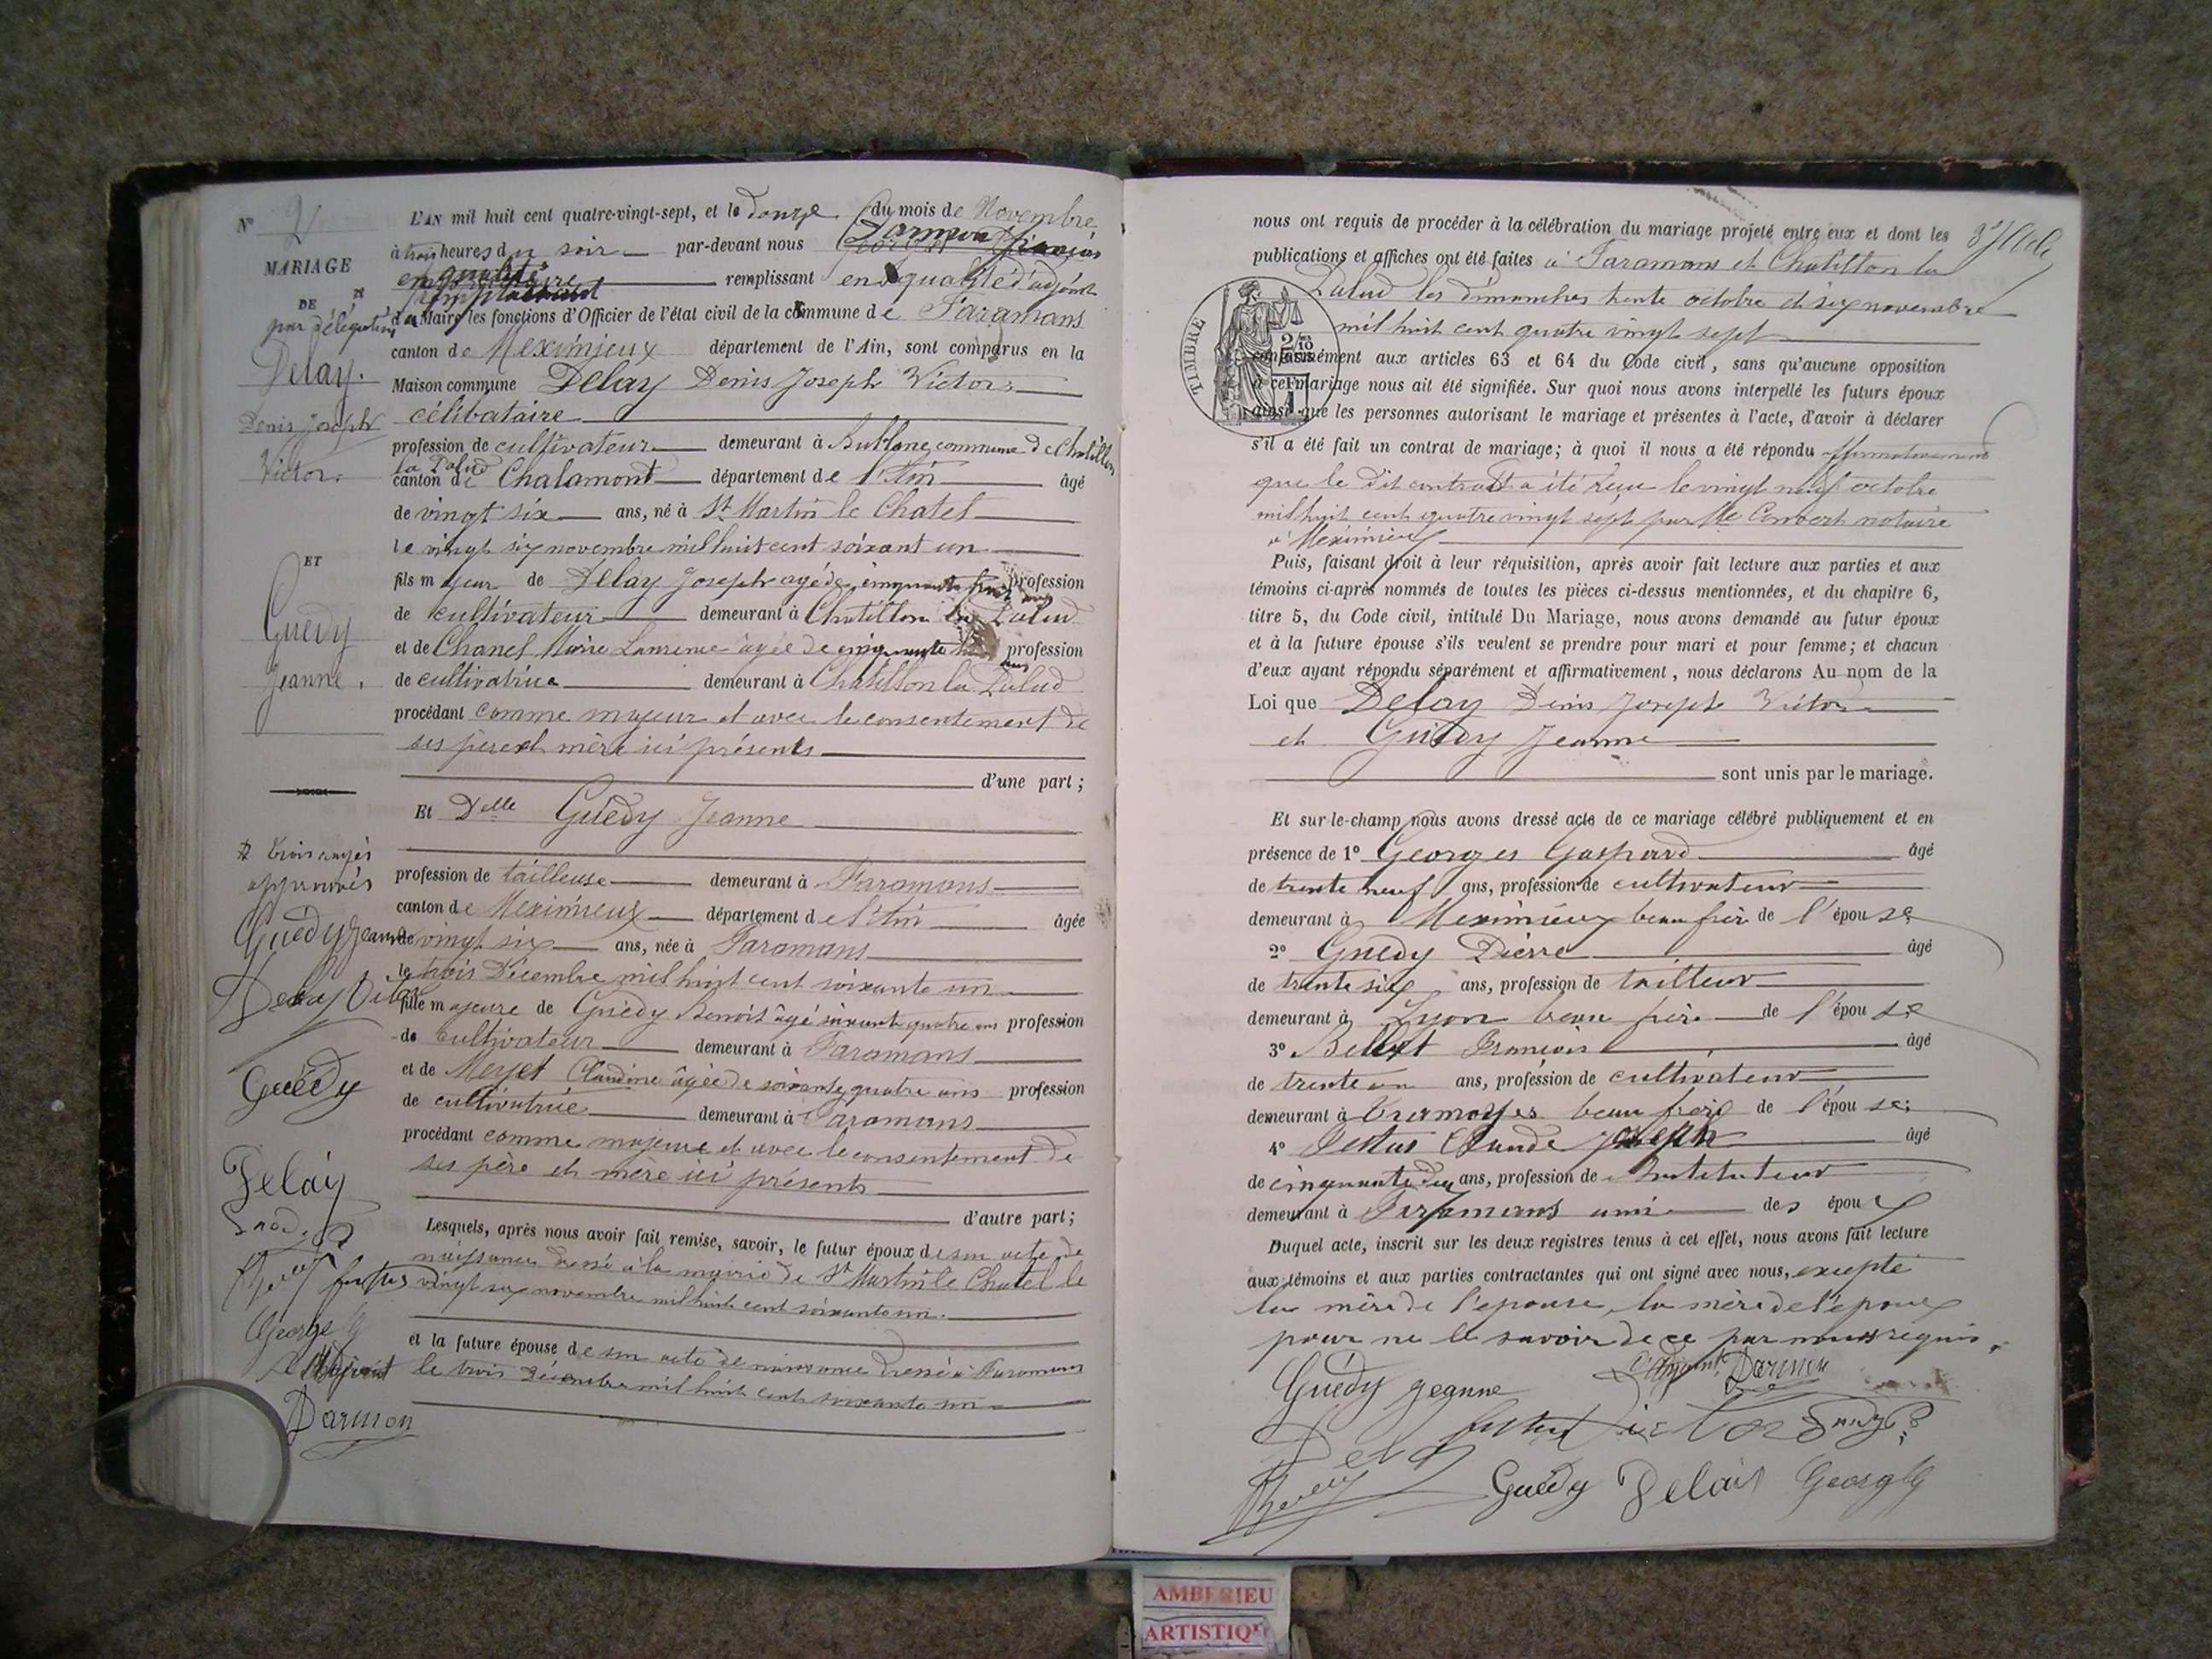 N° 2
MARIAGE
DE
par délégation
Delay.
Denis Joseph
Victor.
ET
Guédy
Jeanne.
trois rayés
approuvés
Guédy Jeanne
Delay Victor
Guédy
Delay
George G
L'adjoint
Darmon
L'AN mil huit cent quatre-vingt-sept, et le douze du mois de Novembre
à trois heures du soir par-devant nous Darmon François
remplissant en qualité d'adjoint
du Maire les fonctions d'Officier de l'état civil de la commune de Faramans
canton de Meximieux département de l'Ain, sont comparus en la
Maison commune Delay Denis Joseph Victor
célibataire
profession de cultivateur demeurant à Bublane, commune de Chatillon
la Palud
canton de Chalamont département de l'Ain âgé
de vingt six ans, né à St Martin le Chatel
le vingt six novembre mil huit cent soixant un
fils majeur de Delay Joseph agé de cinquante huit ans profession
de cultivateur demeurant à Chatillon la Palud
et de Chanel Marie Laurence âgée de cinquante ans profession
de cultivatrice demeurant à Chatillon la Palud
procédant comme majeur et avec le consentement de
ses père et mère ici présents
d'une part;
Et Delle Guédy Jeanne
profession de tailleuse demeurant à Faramans
canton de Meximieux département de l'Ain âgée
de vingt six ans, née à Faramans
le trois Décembre mil huit cent soixante un
fille majeure de Guédy Benoit âgé soixante quatre ans profession
de cultivateur demeurant à Faramans
et de Meyet Claudine âgée de soixante quatre ans profession
de cultivatrice demeurant à Faramans
procédant comme majeure et avec le consentement de
ses père et mère ici présents
d'autre part;
Lesquels, après nous avoir fait remise, savoir, le futur époux de son acte de
naissance dressé à la mairie de St Martin le Chatel le
vingt six novembre mil huit cent soixante un.
et la future épouse de son acte de naissance dressé à Faramans
le trois Décembre mil huit cent soixante un
nous ont requis de procéder à la célébration du mariage projeté entre eux et dont les
publications et affiches ont été faites à Faramans et Chatillon la
Palud les dimanches trente octobre et six novembre
mil huit cent quatre vingt sept
TIMBRE
conformément aux articles 63 et 64 du Code civil, sans qu'aucune opposition
à ce mariage nous ait été signifiée. Sur quoi nous avons interpellé les futurs époux
ainsi que les personnes autorisant le mariage et présentes à l'acte, d'avoir à déclarer
s'il a été fait un contrat de mariage; à quoi il nous a été répondu affirmativement
que le dit contrat a été reçu le vingt neuf octobre
mil huit cent quatre vingt sept par Me Convert notaire
à Meximieux
Puis, faisant droit à leur réquisition, après avoir fait lecture aux parties et aux
témoins ci-après nommés de toutes les pièces ci-dessus mentionnées, et du chapitre 6,
titre 5, du Code civil, intitulé Du Mariage, nous avons demandé au futur époux
et à la future épouse s'ils veulent se prendre pour mari et pour femme; et chacun
d'eux ayant répondu séparément et affirmativement, nous déclarons Au nom de la
Loi que Delay Denis Joseph Victor
et Guédy Jeanne
sont unis par le mariage.
Et sur-le-champ nous avons dressé acte de ce mariage célébré publiquement et en
présence de 1° Georges Gaspard âgé
de trente neuf ans, profession de cultivateur
demeurant à Meximieux beau frère de l'épouse
2° Guédy Pierre âgé
de trente six ans, profession de tailleur
demeurant à Lyon beau frère de l'épouse
3° Belley François âgé
de trente un ans, profession de cultivateur
demeurant à Tramoyes beau frère de l'épouse;
4° Claude Joseph âgé
de cinquante ans, profession de Instituteur
demeurant à Faramans ami des époux
Duquel acte, inscrit sur les deux registres tenus à cet effet, nous avons fait lecture
aux témoins et aux parties contractantes qui ont signé avec nous, excepté
la mère de l'épouse, la mère de l'époux
pour ne le savoir de ce par nous requis.
Guédy Jeanne L'Adjoint Darmon
Victor
Delay
Guédy Delay George G
AMBERIEU
ARTISTIQ